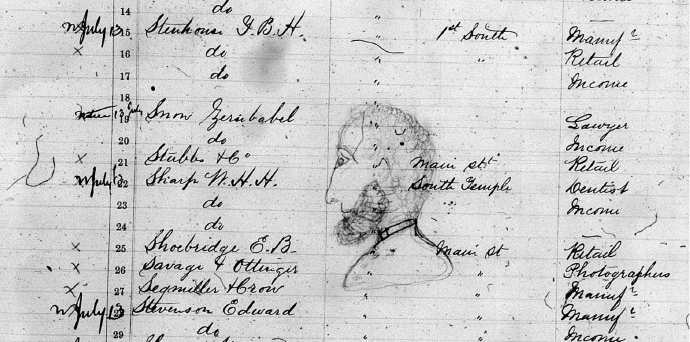 14 do "
July 13 15 Stenhouse T. B. H. " 1st South Manufr
x 16 do " " Retail
17 do " Income
18
13 July 19 Snow Zerubabel " Lawyer
20 do " Income
x 21 Stubbs & Co " Main stt Retail
July 13 22 Sharp W. H. H. " South Temple Dentist
23 do " Income
24 do "
x 25 Shoebridge E. B. " Main st Retail
x 26 Savage & Ottinger " " Photographers
x 27 Segmiller & Crow " " Manufr
July 13 28 Stevenson Edward " " Manufr
29 do " " Income